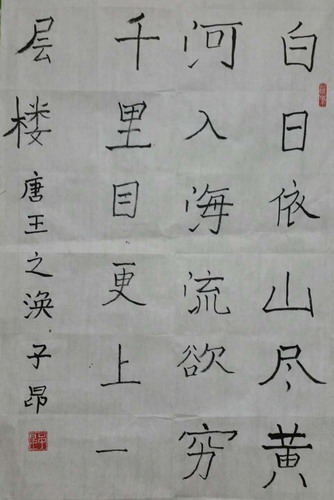 白日依山尽黄
河入海流欲穷
千里目更上一
层楼唐王之涣子昂